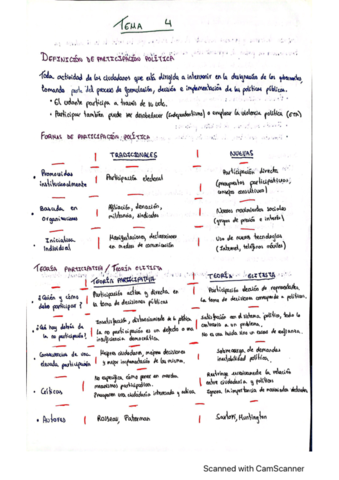 TEMA 4
DEFINICIÓN DE PARTICIPACIÓN POLÍTICA
Toda actividad de los ciudadanos que está dirigida a intervenir en la designación de los gobernantes,
tomando parte del proceso de formulación, decisión e implementación de las políticas públicas.
• El votante participa a través de su voto.
• Participar también puede ser desobedecer (independentismo) o emplear la violencia política (ETA)
FORMAS DE PARTICIPACIÓN POLÍTICA
TRADICIONALES
NUEVAS
• Promovidas institucionalmente
Participación electoral
Participación directa
(presupuestos participativos,
consejos consultivos)
• Basadas en organizaciones
Afiliación, donación,
militancia, sindicatos
Nuevos movimientos sociales
(grupos de presión e interés)
• Iniciativa Individual
Manifestaciones, declaraciones
en medios de comunicación
Uso de nuevas tecnologías
(Internet, teléfonos móviles)
TEORÍA PARTICIPATIVA / TEORÍA ELITISTA
TEORÍA PARTICIPATIVA
TEORÍA ELITISTA
• ¿Quién y cómo debe participar?
Participación activa y directa en
la toma de decisiones públicas
Participación elección de representantes,
la toma de decisiones corresponde a políticos.
• ¿Qué hay detrás de la no participación?
Insatisfacción, distanciamiento de la política
La no participación es un defecto o una
insuficiencia democrática.
Satisfacción con el sistema político, todo lo
contrario a un problema.
• Consecuencias de una elevada participación
Mejores ciudadanos, mejores decisiones
y mejor implementación de las mismas.
Sobrecarga de demandas
Inestabilidad política.
• Críticas
No especifica cómo poner en marcha
mecanismos participativos.
Presuponen una ciudadanía interesada y activa.
Restringe excesivamente la relación
entre ciudadanía y políticos
Ignora la importancia de
• Autores
Rosseau, Paterman
Sartori, Huntington
Scanned with CamScanner